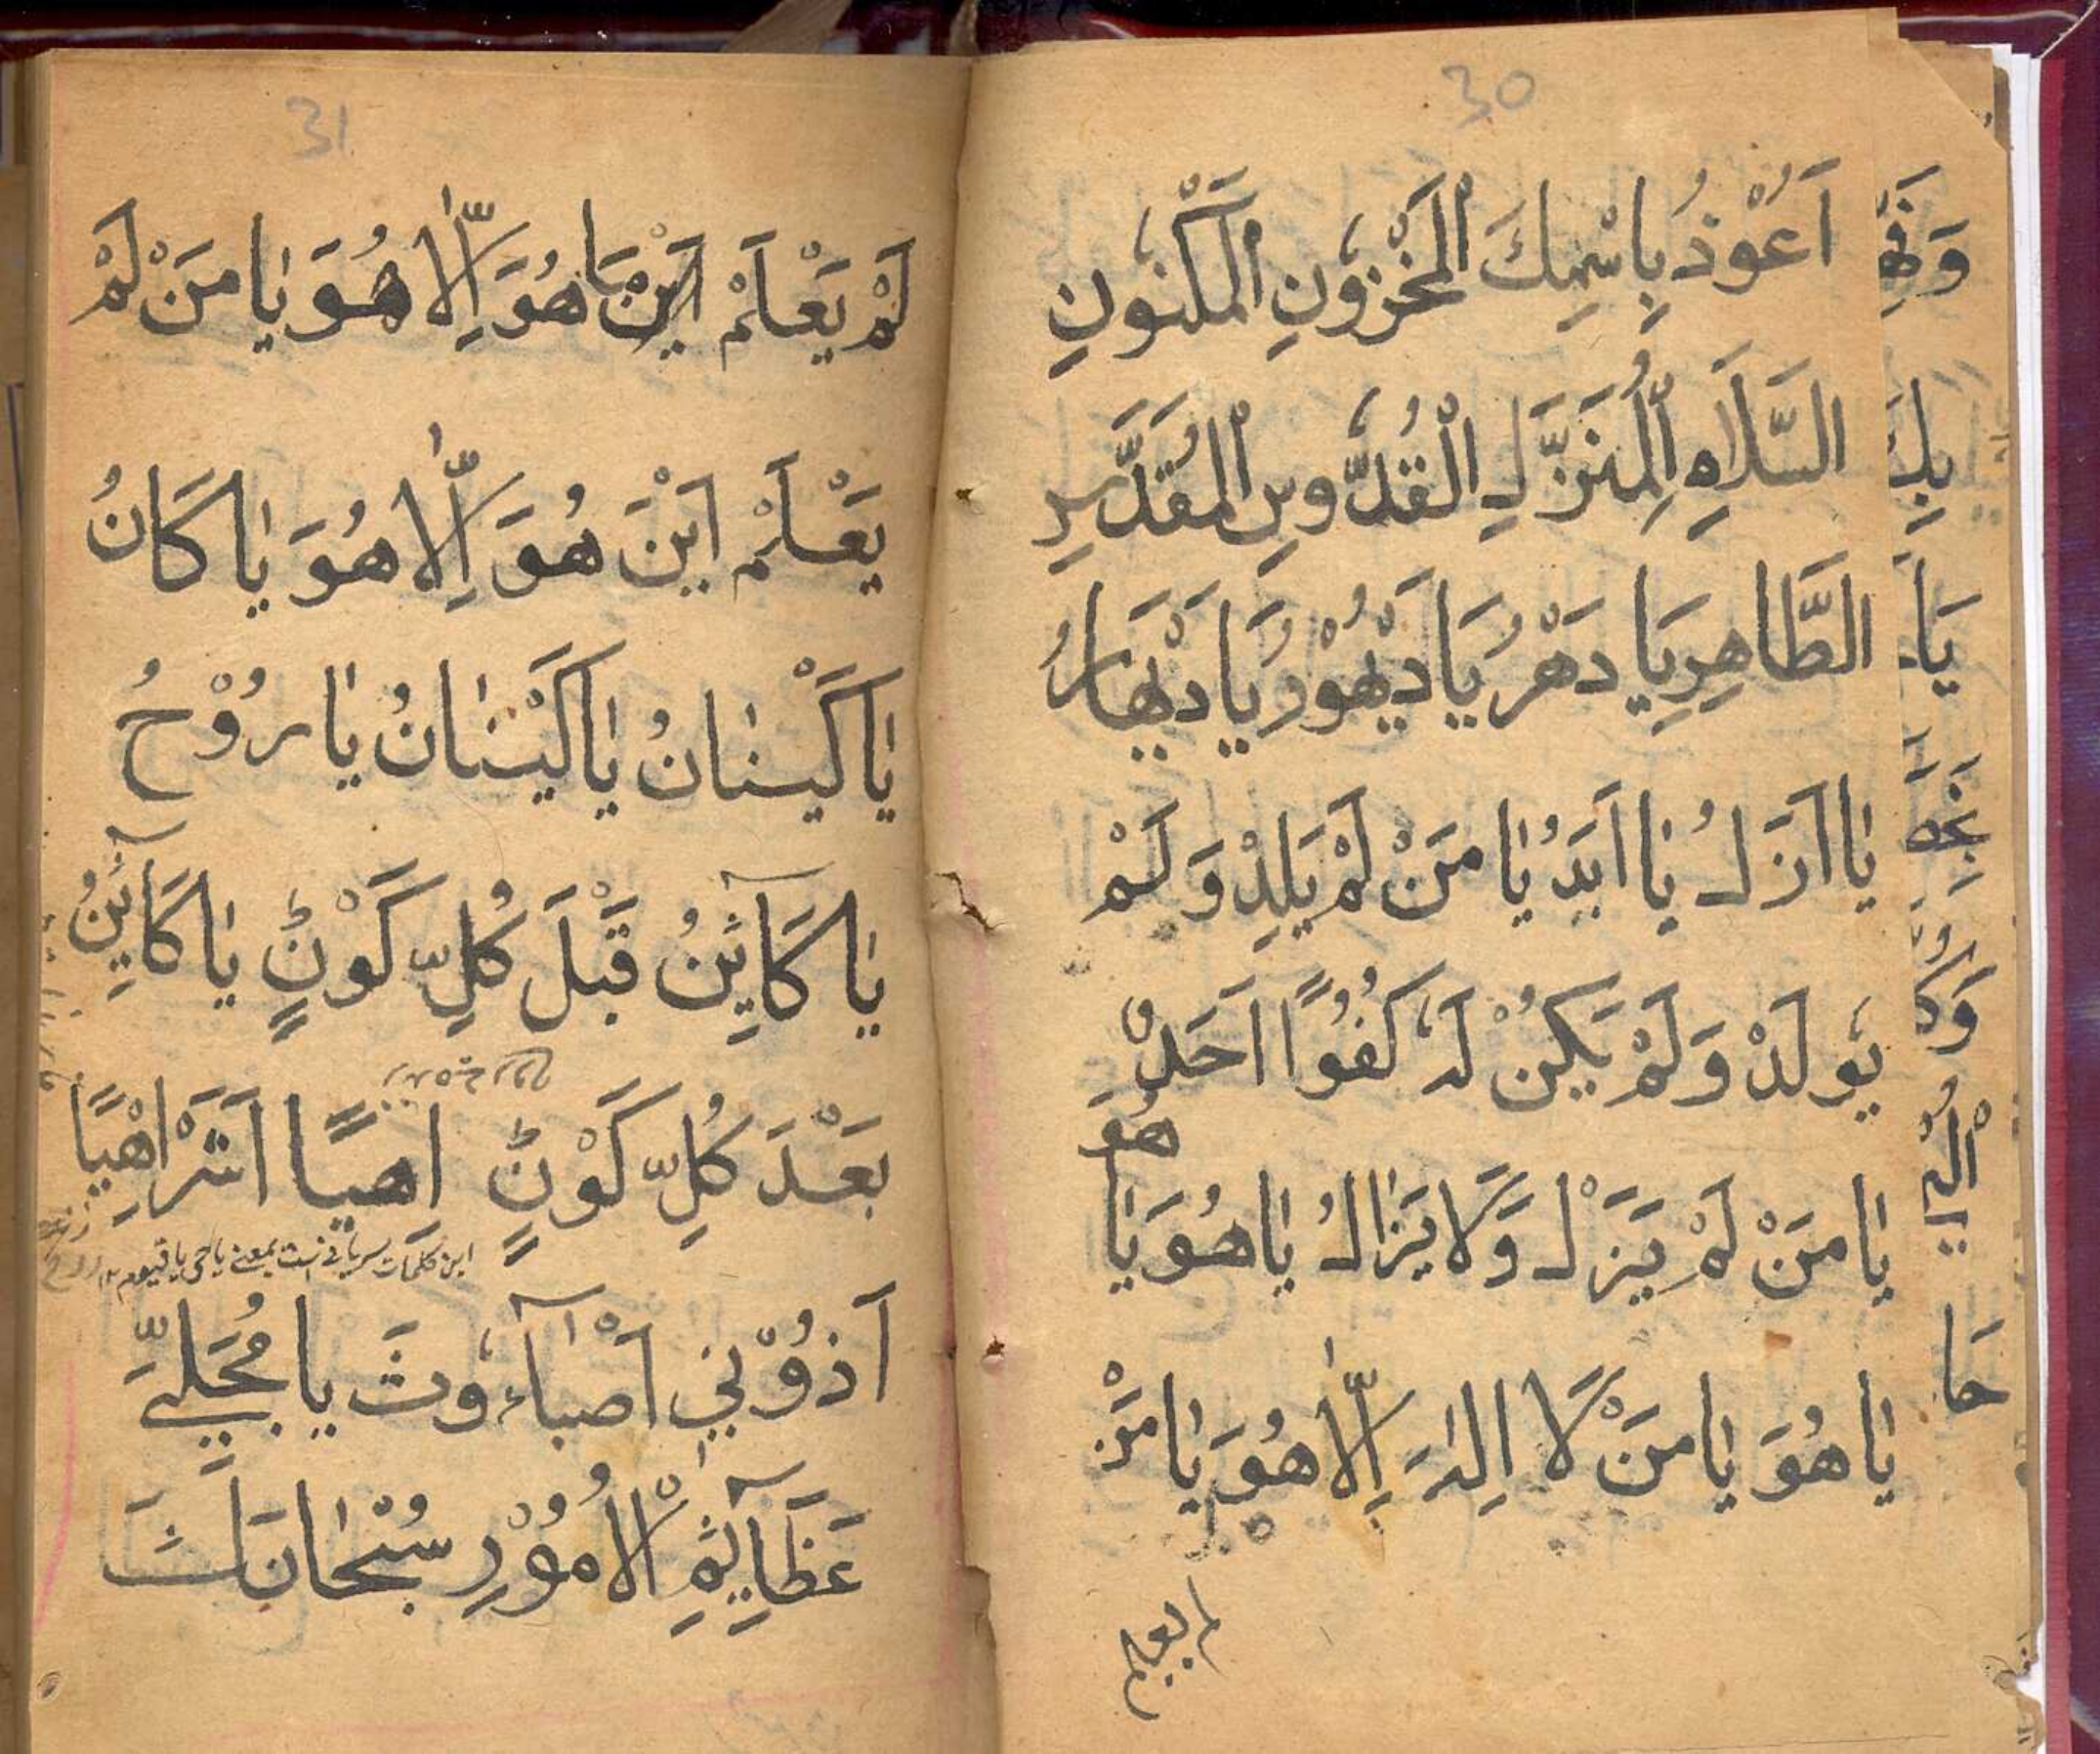 30
اَعُوْذُ بِاسْمِكَ الْمَخْزُونِ الْمَكْنُونِ
السَّلَامِ الْمُنَزَّلِ الْقُدُّوسِ الْمُقَدَّسِ
الطَّاهِرِ يَا دَهْرُ يَا دَيْهُوْرُ يَا دَيْهَارُ
يٰا اَزَلُ يٰا اَبَدُ يٰا مَنْ لَمْ يَلِدْ وَلَمْ
يُولَدْ وَلَمْ يَكُنْ لَهُ كُفُوًا اَحَدٌ
هُوَ
يٰا مَنْ لَمْ يَزَلْ وَلَا يَزٰالُ يٰا هُوَ يٰا
يٰا هُوَ يٰا مَنْ لَا اِلٰهَ اِلّٰا هُوَ يٰا مَنْ
لم يعلم
31
لَمْ يَعْلَمْ اَيْنَ مَا هُوَ اِلّٰا هُوَ يٰا مَنْ لَمْ
يَعْلَمْ اَيْنَ هُوَ اِلّٰا هُوَ يٰا كَانُ
يٰا كَيْنٰانُ يٰا كَيْنٰانُ يٰا رُوْحُ
يٰا كَآئِنُ قَبْلَ كُلِّ كَوْنٍ يٰا كَآئِنُ
بَعْدَ كُلِّ كَوْنٍ اِهِيًا اَشَرْاِهْيًا
این کلمات سریانی است بمعنی یا حی یا قیوم ۱۲
اَذُوْنِي اَصْبَآءُوثَ يا مُجَلِّيَ
عَظَآئِمِ الْاُمُوْرِ سُبْحٰانَكَ